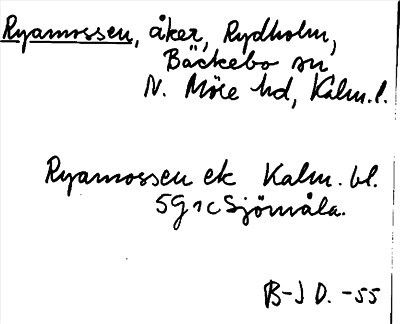 Ryamossen, åker, Rydholm,
Bäckebo sn
N. Möre hd, Kalm. l.
Ryamossen ek Kalm. bl.
5G 1c Sjömåla.
B-J D. -55